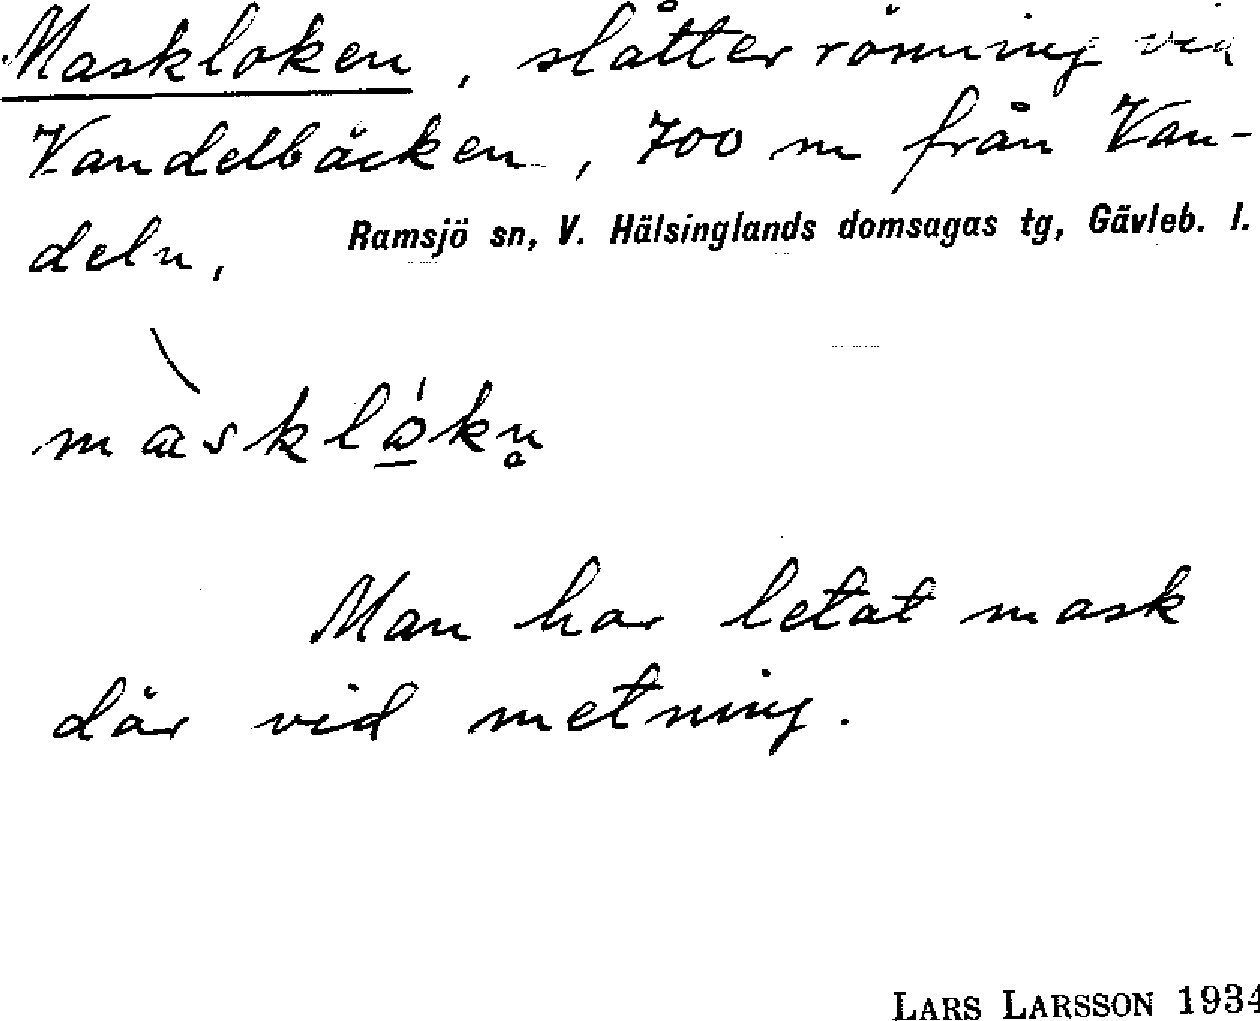 Maskloken, slåtterrönning vid
Vandelbäcken, 700 m från Van-
deln,
Ramsjö sn, V. Hälsinglands domsagas tg, Gävleb. l.
Man har letat mask
där vid metning.
LARS LARSSON 1934